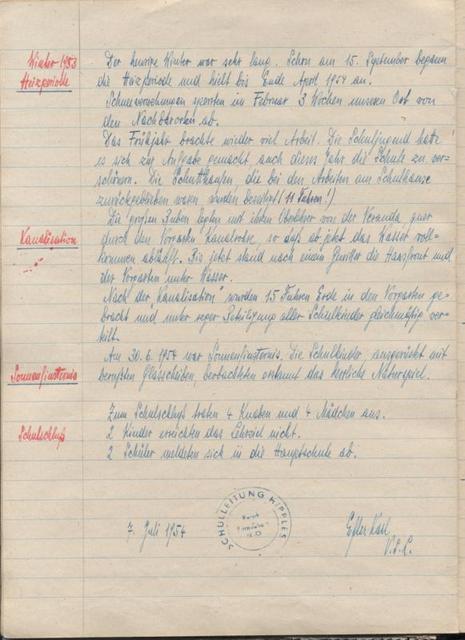 Winter 1953
Heizperiode
Der heurige Winter war sehr lang. Schon am 15. September begann
die Heizperiode und hielt bis Ende April 1954 an.
Schneeverwehungen sperrten im Februar 3 Wochen unseren Ort von
den Nachbarorten ab.
Das Frühjahr brachte wieder viel Arbeit. Die Schuljugend hatte
es sich zur Aufgabe gemacht auch dieses Jahr die Schule zu ver-
schönern. Die Schutthaufen die bei den Arbeiten am Schulhause
zurückgeblieben waren wurden (11 Fuhren!)
Kanalisation
Die großen Buben legten mit ihrem von der Veranda quer
durch den Vorgarten Kanalrohre, so daß ab jetzt das Wasser voll-
kommen abläuft. Bis jetzt stand nach einem Gewitter die Hausfront und
der Vorgarten unter Wasser.
Nach der Kanalisation wurden 15 Fuhren Erde in den Vorgarten ge-
bracht und unter reger Beteiligung aller Schulkinder gleichmäßig ver-
teilt.
Sonnenfinsternis
Am 30. 6. 1954 war Sonnenfinsternis. Die Schulkinder, ausgerüstet mit
berußten Glasscheiben beobachteten das Naturspiel.
Schulschluß
Zum Schulschluß traten 4 Knaben und 4 Mädchen aus.
2 Kinder erreichten das Lehrziel nicht.
2 Schüler meldeten sich in die Hauptschule ab.
7. Juli 1954
SCHULLEITUNG HIPPLES